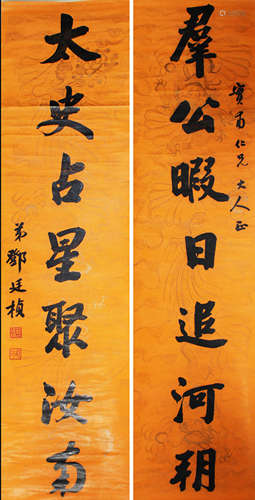 羣公暇日追河朔
寅甫仁兄大人正
太史占星聚汝南
弟鄧廷楨